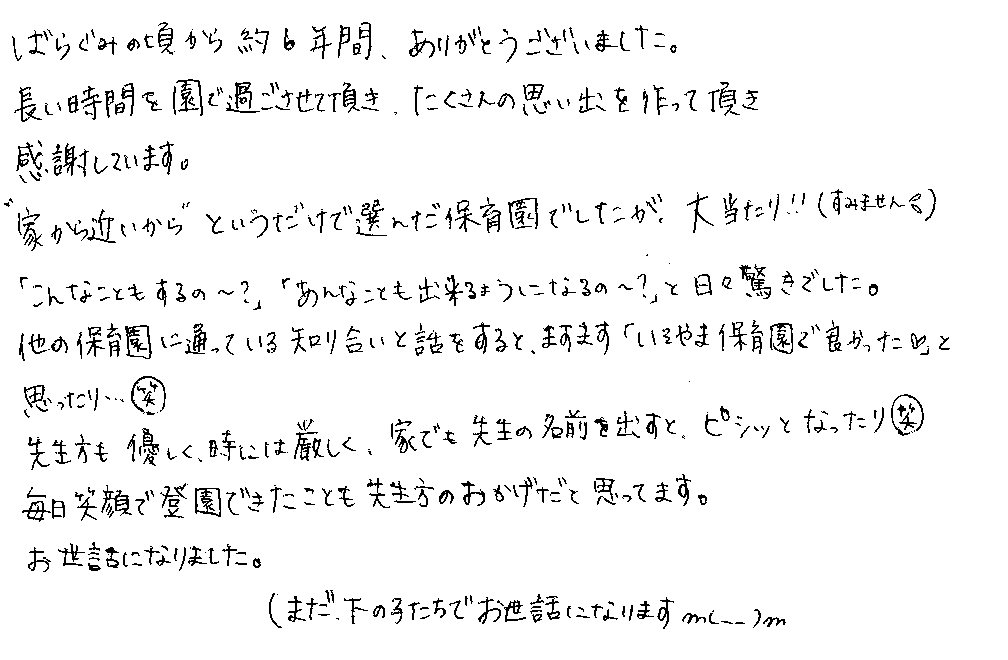 ばらぐみの頃から約6年間、ありがとうございました。
長い時間を園で過ごさせて頂き、たくさんの思い出を作って頂き
感謝しています。
"家から近いから"というだけで選んだ保育園でしたが、大当たり!!(すみません^^;)
「こんなこともするの〜?」「あんなことも出来るようになるの〜?」と日々驚きでした。
他の保育園に通っている知り合いと話をすると、ますます「いろやま保育園で良かった♡」と
思ったり…㊗
先生方も優しく、時には厳しく、家でも先生の名前を出すと、ピシッとなったり(笑)
毎日笑顔で登園できたことも先生方のおかげだと思ってます。
お世話になりました。
(まだ、下の子たちでお世話になりますm(__)m